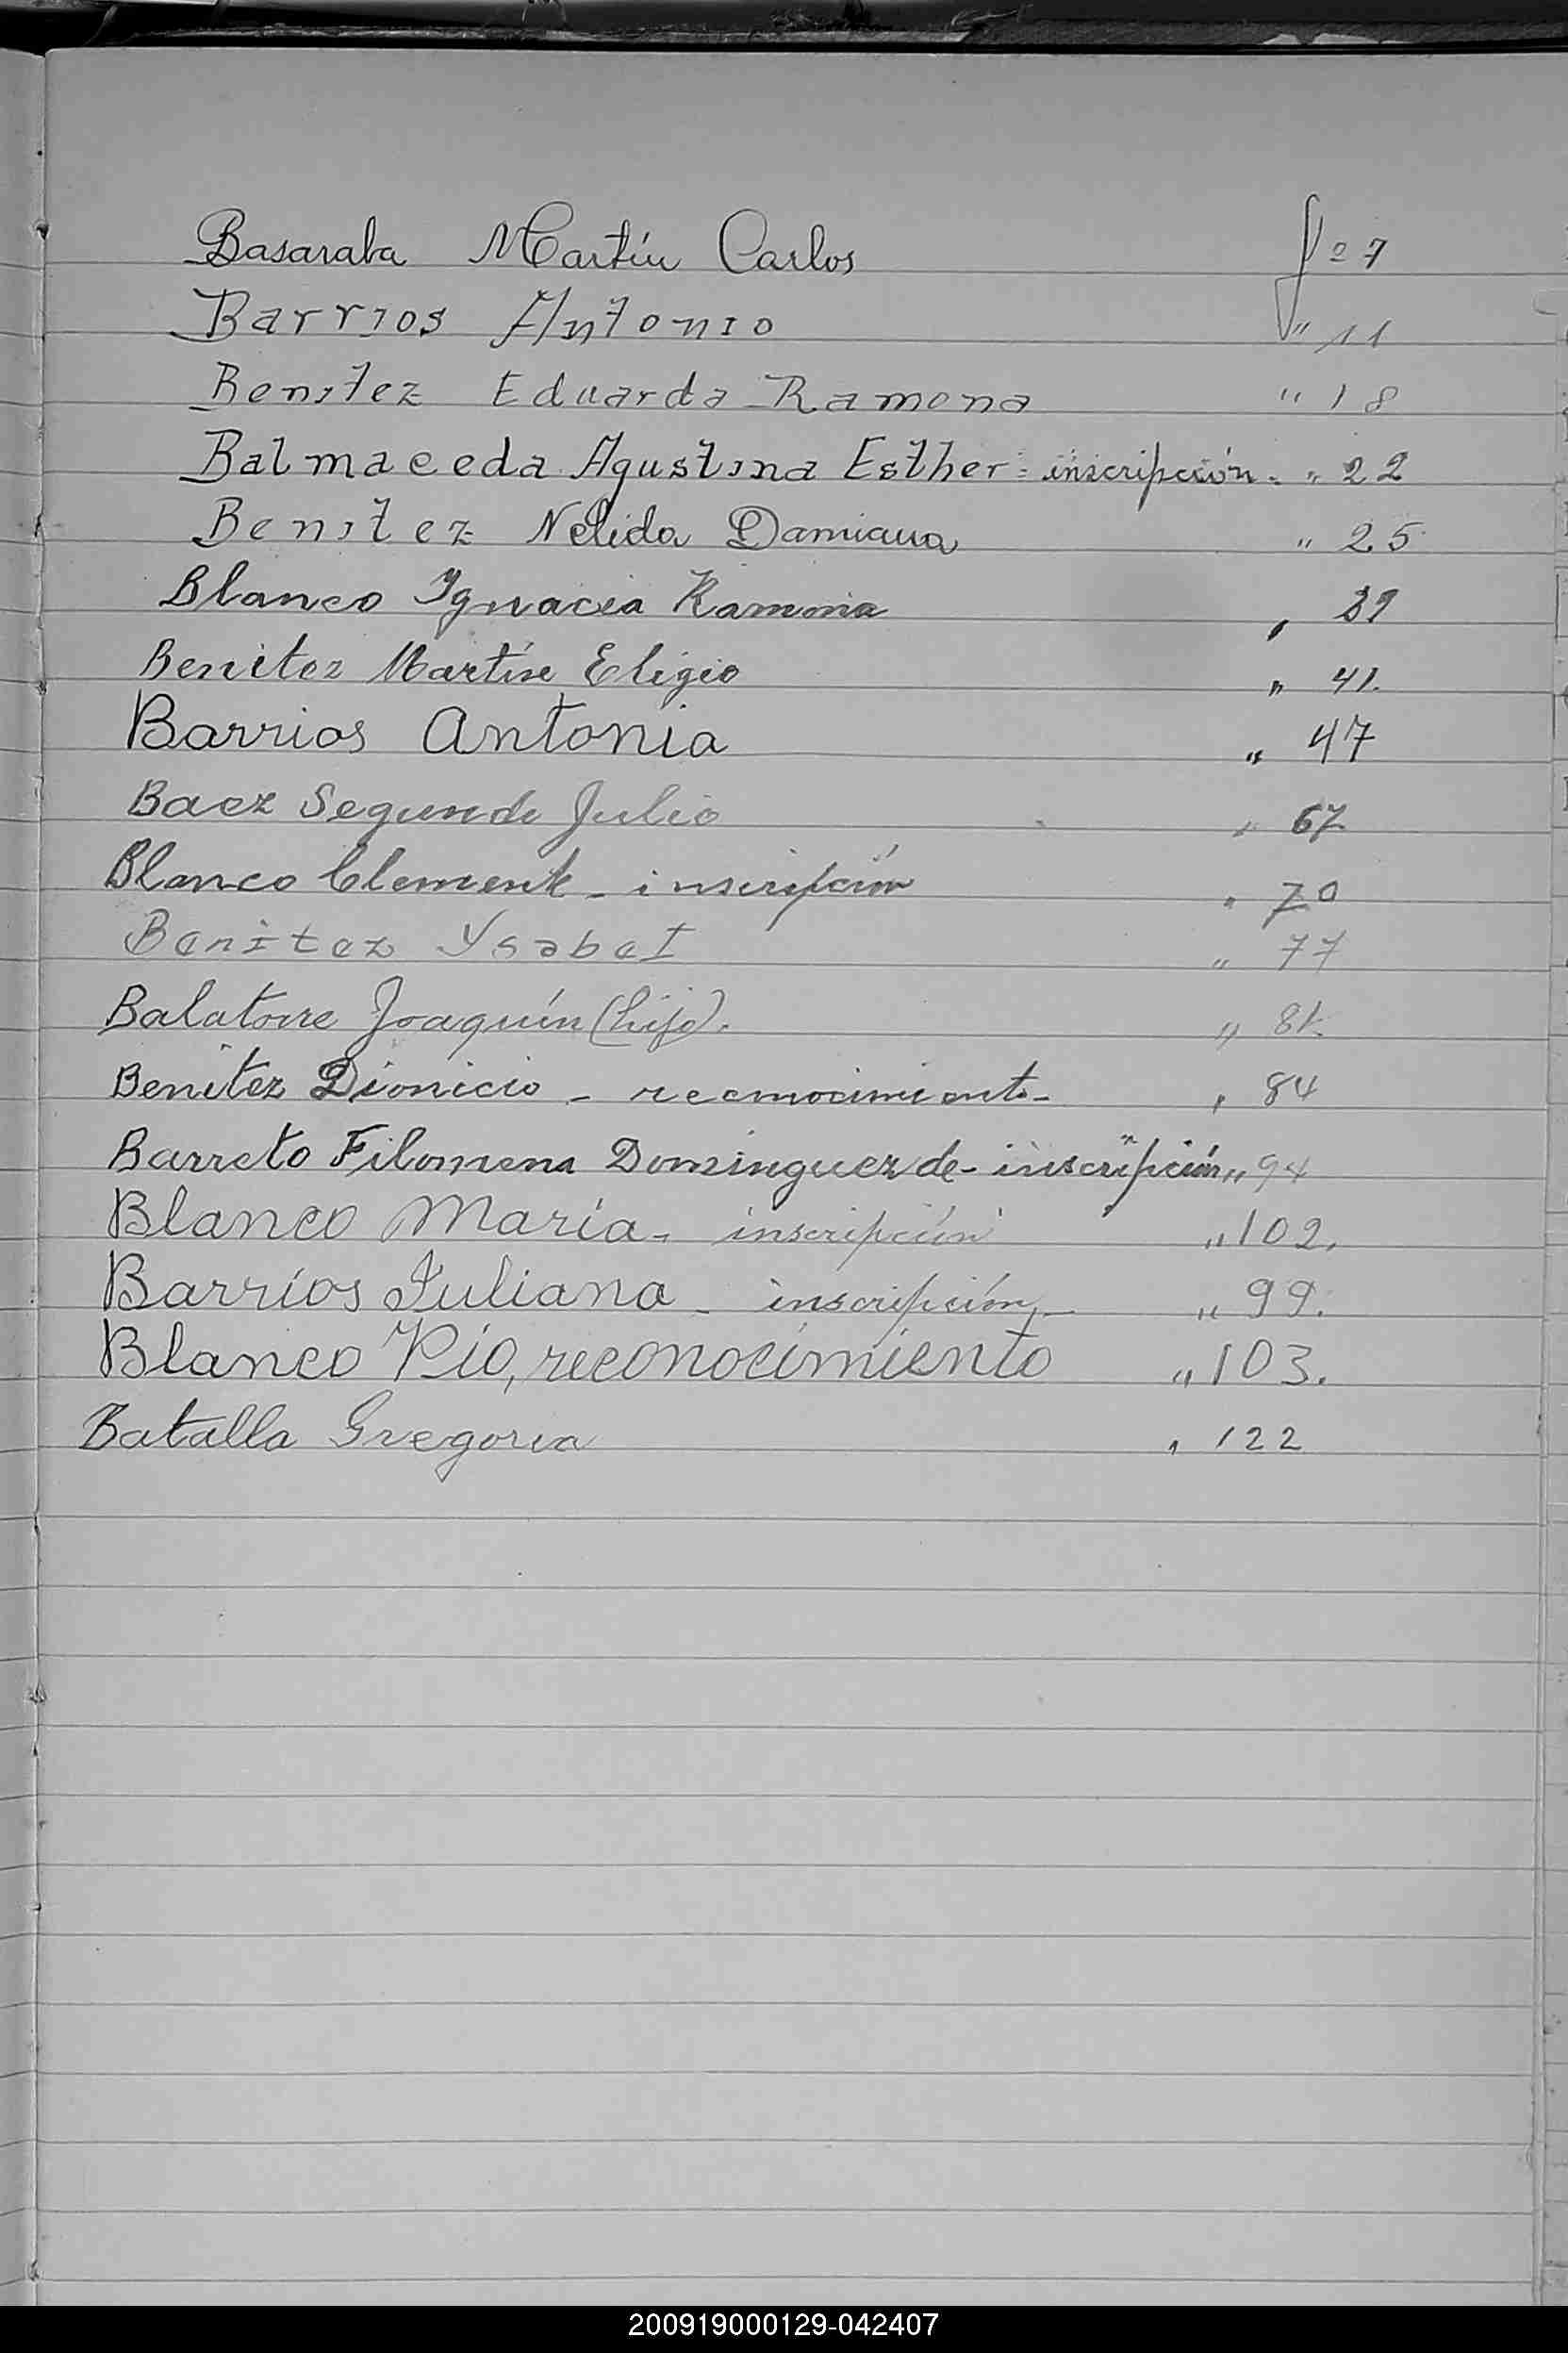 Basaraba Martín Carlos fº 7
Barrios Antonio " 11
Benitez Eduarda Ramona " 18
Balmaceda Agustina Esther - inscripción - " 22
Benitez Nelida Damiana " 25
Blanco Ygnacia Ramona " 39
Benitez Martín Eligio " 41.
Barrios Antonia " 47
Baez Segundo Julio " 67
Blanco Clemente - inscripción " 70
Benitez Ysabel " 77
Balatorre Joaquín (hijo). " 81.
Benitez Dionicio - reconocimiento - " 84
Barreto Filomena Dominguez de - inscripción " 94
Blanco María - inscripción " 102.
Barríos Juliana - inscripción - " 99.
Blanco Pío, reconocimiento " 103.
Batalla Gregoria " 122
200919000129-042407